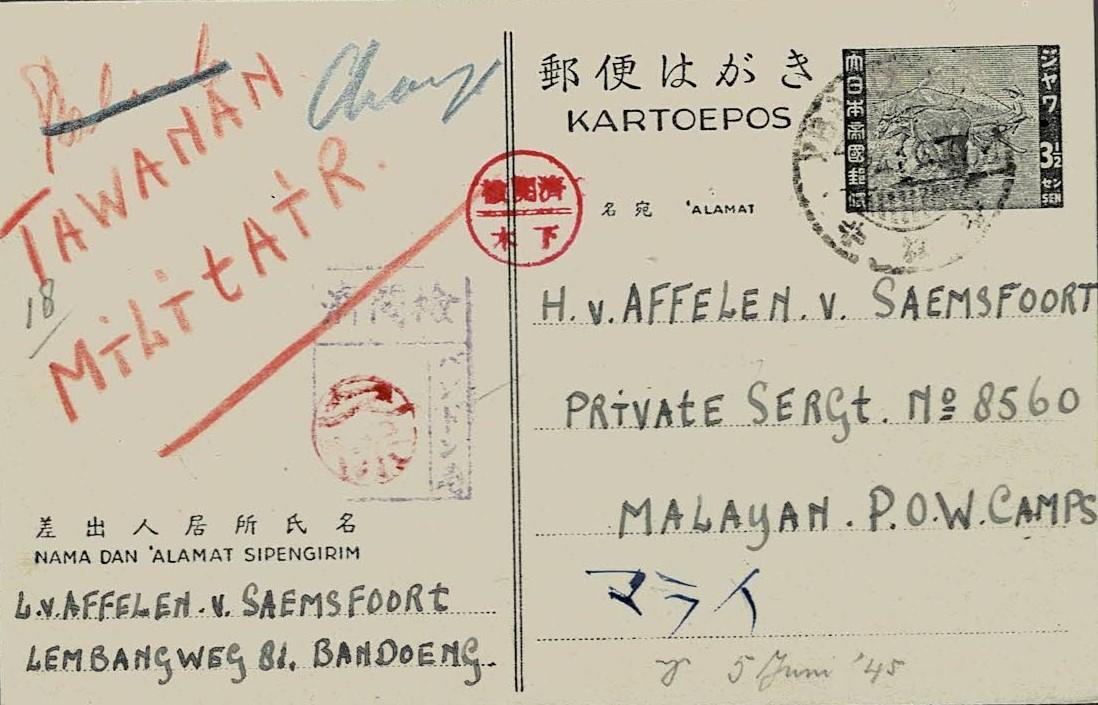 TAWANAN
MiLitAiR.
18
検閲済
木下
差出人居所氏名
NAMA DAN 'ALAMAT SIPENGIRIM
L.v.AFFELEN.v. SAEMSFOORt
LEMBANGWEG 81. BANDOENG.
郵便はがき
KARTOEPOS
大日本帝國郵便
ジャワ
3½
セン
SEN
名宛 'ALAMAT
H.v.AFFELEN.v. SAEMSFOORT
PRiVAtE SERGt. Nº 8560
MALAYAN. P.O.W.CAMPS
マライ
5 Juni '45